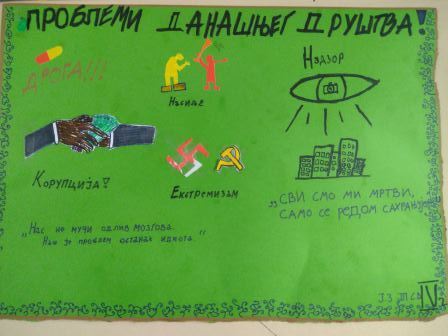 ПРОБЛЕМИ ДАНАШЊЕГ ДРУШТВА!
ДРОГА!!!
Насиље
Надзор
Корупција!
Екстремизам
„СВИ СМО МИ МРТВИ,
САМО СЕ РЕДОМ САХРАЊУЈЕМО
„Нас не мучи одлив мозгова.
Наш је проблем останак идиота.“
IV